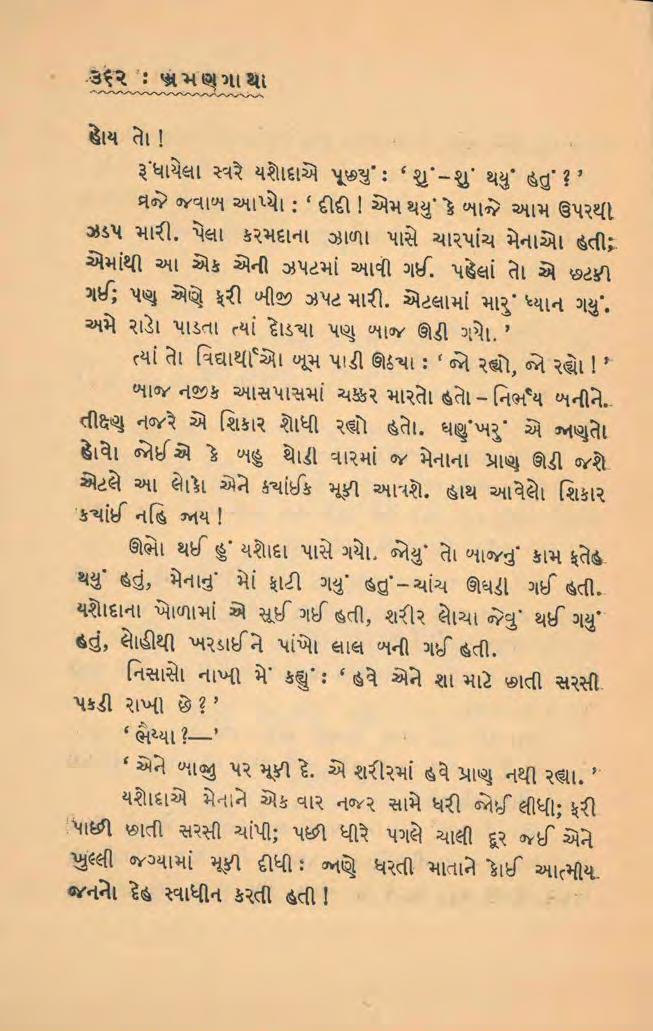 ૩૬૨ : ભ્રમણગાથા
હોય તો !
રૂંધાયેલા સ્વરે યશોદાએ પૂછ્યું : ‘ શું–શું થયું હતું ? ’
વ્રજે જવાબ આપ્યો : ‘ દીદી ! એમ થયું કે બાજે આમ ઉપરથી
ઝડપ મારી. પેલા કરમદાના ઝાળા પાસે ચારપાંચ મેનાઓ હતી;
એમાંથી આ એક એની ઝપટમાં આવી ગઈ. પહેલાં તો એ છટકી
ગઈ; પણ એણે ફરી બીજી ઝપટ મારી. એટલામાં મારું ધ્યાન ગયું.
અમે રાડો પાડતા ત્યાં દોડ્યા પણ બાજ ઊડી ગયો. ’
ત્યાં તો વિદ્યાર્થીઓ બૂમ પાડી ઊઠ્યા : ‘ જો રહ્યો, જો રહ્યો ! ’
બાજ નજીક આસપાસમાં ચક્કર મારતો હતો – નિર્ભય બનીને.
તીક્ષ્ણ નજરે એ શિકાર શોધી રહ્યો હતો. ઘણુંખરું એ જાણતો
હોવો જોઈએ કે બહુ થોડી વારમાં જ મેનાના પ્રાણ ઊડી જશે
એટલે આ લોકો એને ક્યાંઈક મૂકી આવશે. હાથ આવેલો શિકાર
ક્યાંઈ નહિ જાય !
ઊભો થઈ હું યશોદા પાસે ગયો. જોયું તો બાજનું કામ ફતેહ
થયું હતું, મેનાનું મોં ફાટી ગયું હતું–ચાંચ ઊઘડી ગઈ હતી.
યશોદાના ખોળામાં એ સૂઈ ગઈ હતી, શરીર લોચા જેવું થઈ ગયું
હતું, લોહીથી ખરડાઈને પાંખો લાલ બની ગઈ હતી.
નિસાસો નાખી મેં કહ્યું : ‘ હવે એને શા માટે છાતી સરસી
પકડી રાખી છે ? ’
‘ ભૈય્યા ?—’
‘ એને બાજુ પર મૂકી દે. એ શરીરમાં હવે પ્રાણ નથી રહ્યા. ’
યશોદાએ મેનાને એક વાર નજર સામે ધરી જોઈ લીધી; ફરી
પાછી છાતી સરસી ચાંપી; પછી ધીરે પગલે ચાલી દૂર જઈ એને
ખુલ્લી જગ્યામાં મૂકી દીધી : જાણે ધરતી માતાને કોઈ આત્મીય
જનનો દેહ સ્વાધીન કરતી હતી !